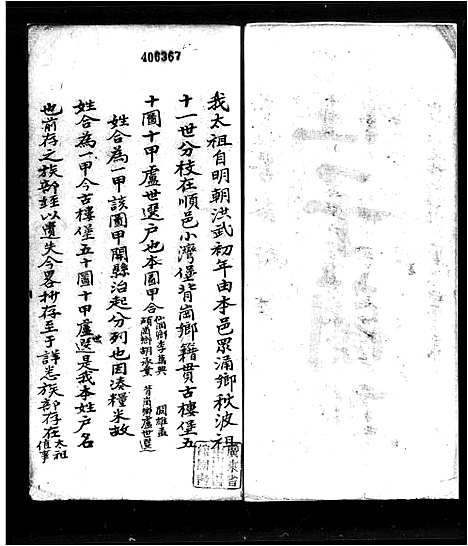 406367
我太祖自明朝洪武初年由本邑眾涌鄉秋波祖
十一世分枝在順邑小灣堡背崗鄉籍貫古樓堡五
十圖十甲盧世選户也本圖甲合
關雄孟
背崗鄉盧世選
姓合為一甲該圖甲開縣治起分列也因湊糧米故
姓合為一甲今古樓堡五十圖十甲盧世選是我本姓户名
也前存之族部經以遺失今畧抄存至于詳悉族部存在太祖值事